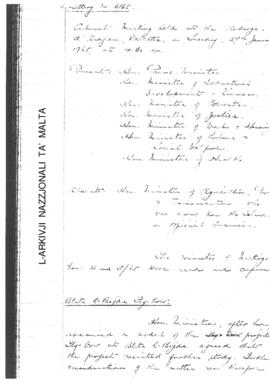 L-ARKIVJI NAZZJONALI TA' MALTA
Sitting No 6/65
Cabinet Meeting held at the Auberge
d'Aragon, Valletta, on Tuesday,
1965, at 10.30 a.m.
Present: Hon. Prime Minister
Hon. Minister of Industrial
Development & Finance
Hon. Minister of Education
Hon. Minister of Justice
Hon. Minister of Works & Housing
Hon. Minister of Labour &
Social Welfare
Hon. Minister of Health
Absent: Hon. Minister of Agriculture,
& who
was away from the Island
on Official Business.
The Minutes of Meetings
Nos. 4 and 5/65 were read and confirmed
Blata l-Bajda
Hon. Ministers, after having
examined a model of the project
at Blata l-Bajda agreed that
the project merited further study. Further
consideration of the matter was therefore